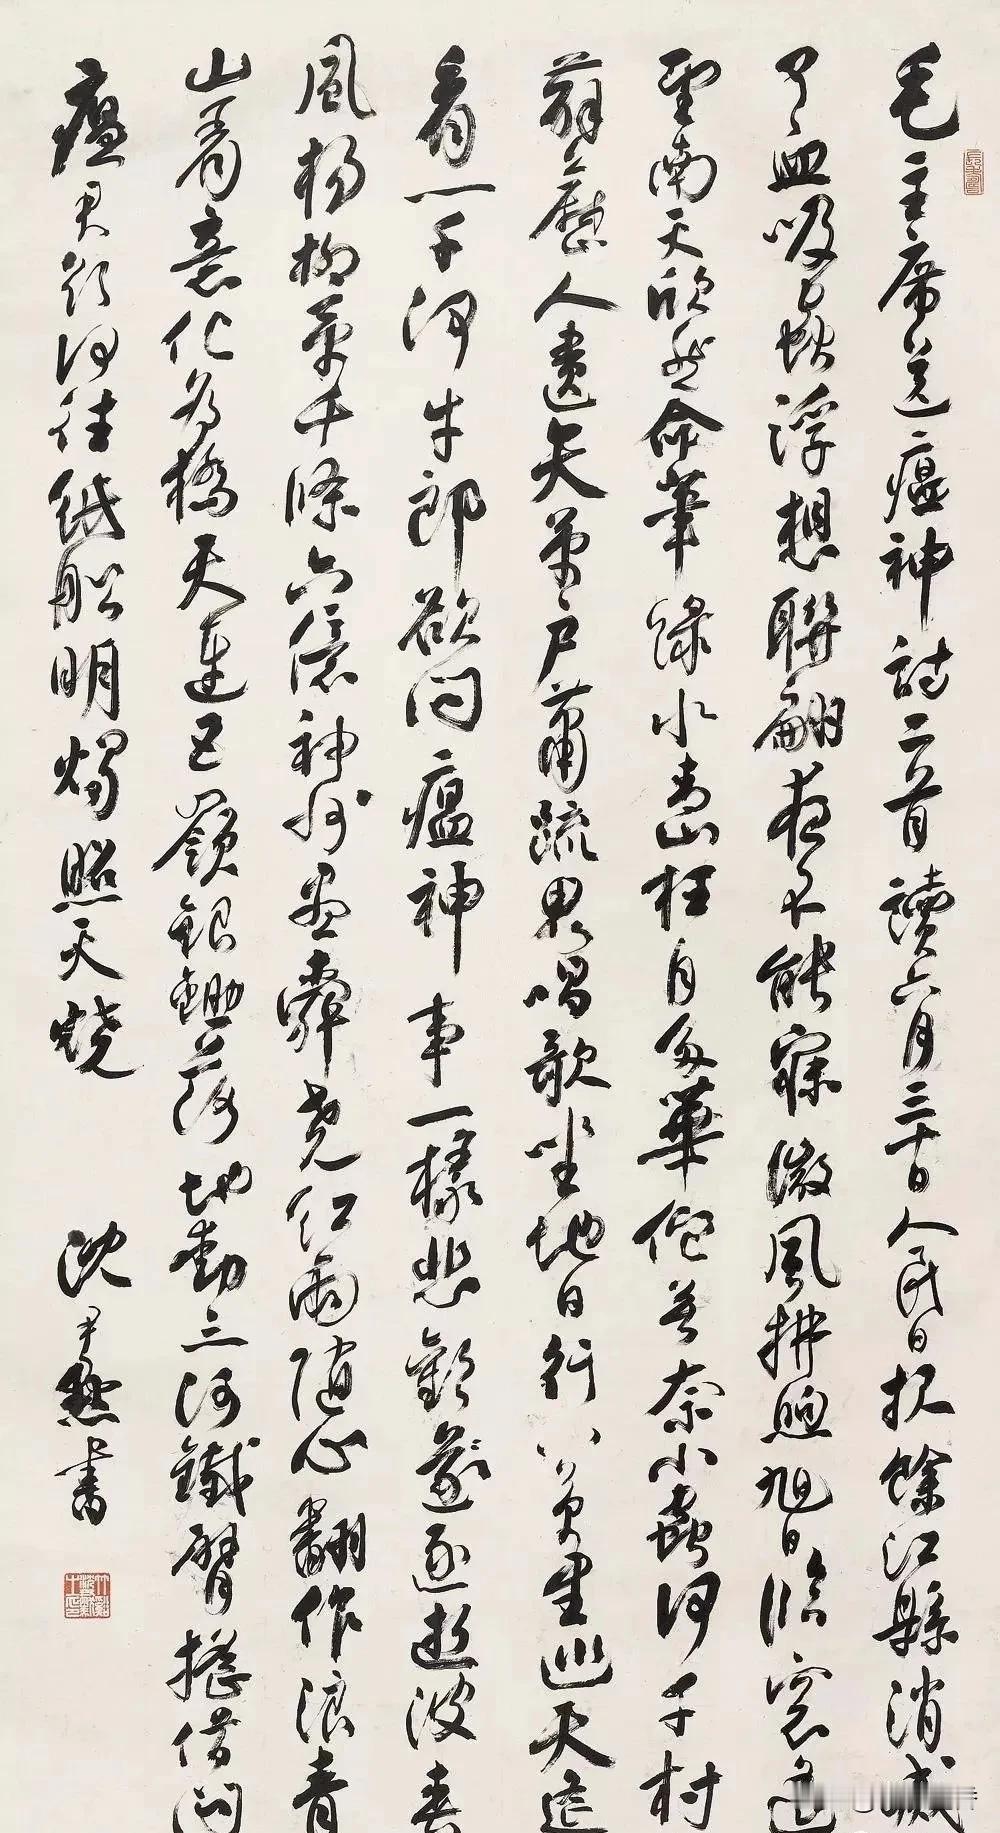 毛主席送瘟神詩二首讀六月三十日人民日报餘江縣消滅
了血吸蟲浮想聯翩夜不能寐微風拂煦旭日臨窗遙
望南天欣然命筆綠水青山枉自多華佗無奈小蟲何千村
薜藶人遺矢萬戶蕭疏鬼唱歌坐地日行八萬里巡天遙
看一千河牛郎欲問瘟神事一樣悲歡逐逝波春
風楊柳萬千條六億神州盡舜堯紅雨隨心翻作浪青
山着意化為橋天連五嶺銀鋤落地動三河鐵臂搖借問
瘟君欲何往紙船明燭照天燒 沈尹默書